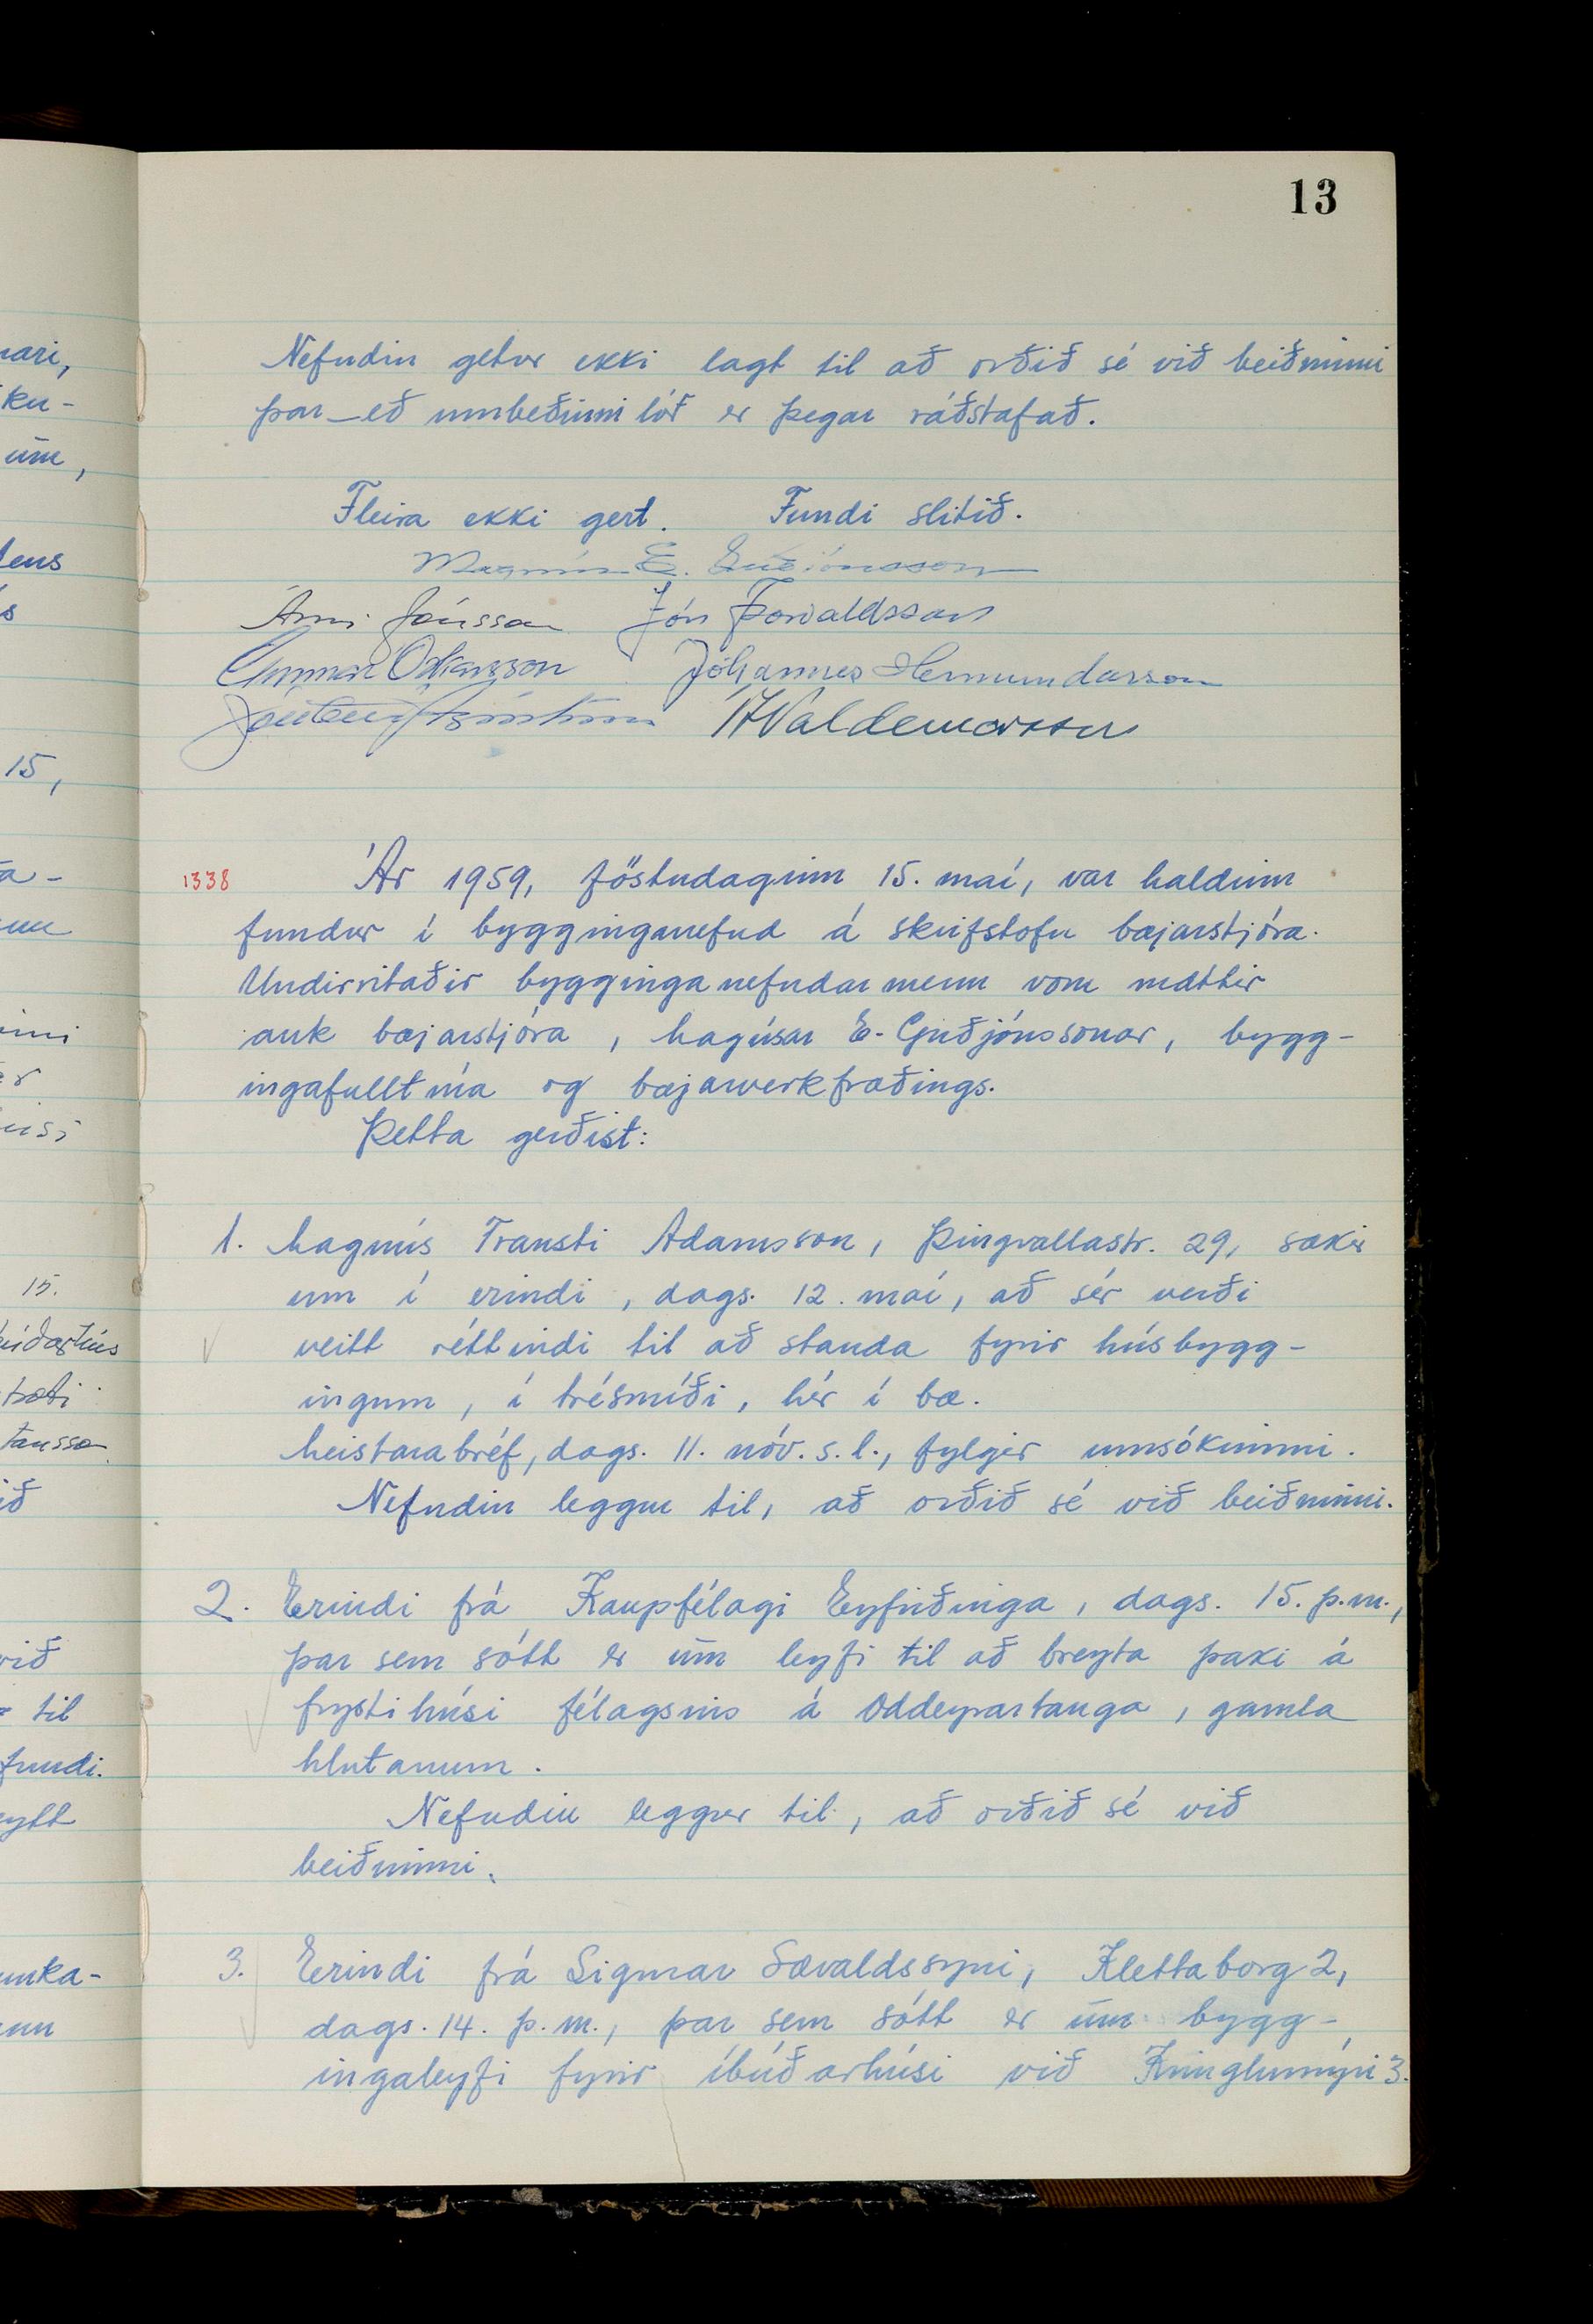 13
Nefndin getur ekki lagt til að orðið sé við beiðninni
þar eð umbeðinni lóð er þegar ráðstafað.
Fleira ekki gert. Fundi slitið.
Magnús E. Guðjónsson
Árni Jónsson Jón Þorvaldsson
Gunnar Óskarsson Jóhannes Hermundarson
Valdemarsson
1338 Ár 1959, föstudaginn 15. maí, var haldinn
fundur í bygginganefnd á skrifstofu bæjarstjóra.
Undirritaðir bygginganefndarmenn voru mættir
auk bæjarstjóra, Magúsar E. Guðjónssonar, bygg-
ingafulltrúa og bæjarverkfræðings.
Þetta gerðist:
1. Magnús Trausti Adamsson, Þingvallastr. 29, sækir
um í erindi, dags. 12. maí, að sér verði
veitt réttindi til að standa fyrir húsbygg-
ingum, í trésmíði, hér í bæ.
Meistarabréf, dags. 11. nóv. s.l., fylgir umsókninni.
Nefndin leggur til, að orðið sé við beiðninni.
2. Erindi frá Kaupfélagi Eyfirðinga, dags. 15. þ.m.,
þar sem sótt er um leyfi til að breyta þaki á
frystihúsi félagsins á Oddeyrartanga, gamla
hlutanum.
Nefndin leggur til, að orðið sé við
beiðninni.
3. Erindi frá Sigmar Sævaldssyni, Klettaborg 2,
dags. 14. þ.m., þar sem sótt er um bygg-
ingaleyfi fyrir íbúðarhúsi við Kringlumýri 3.